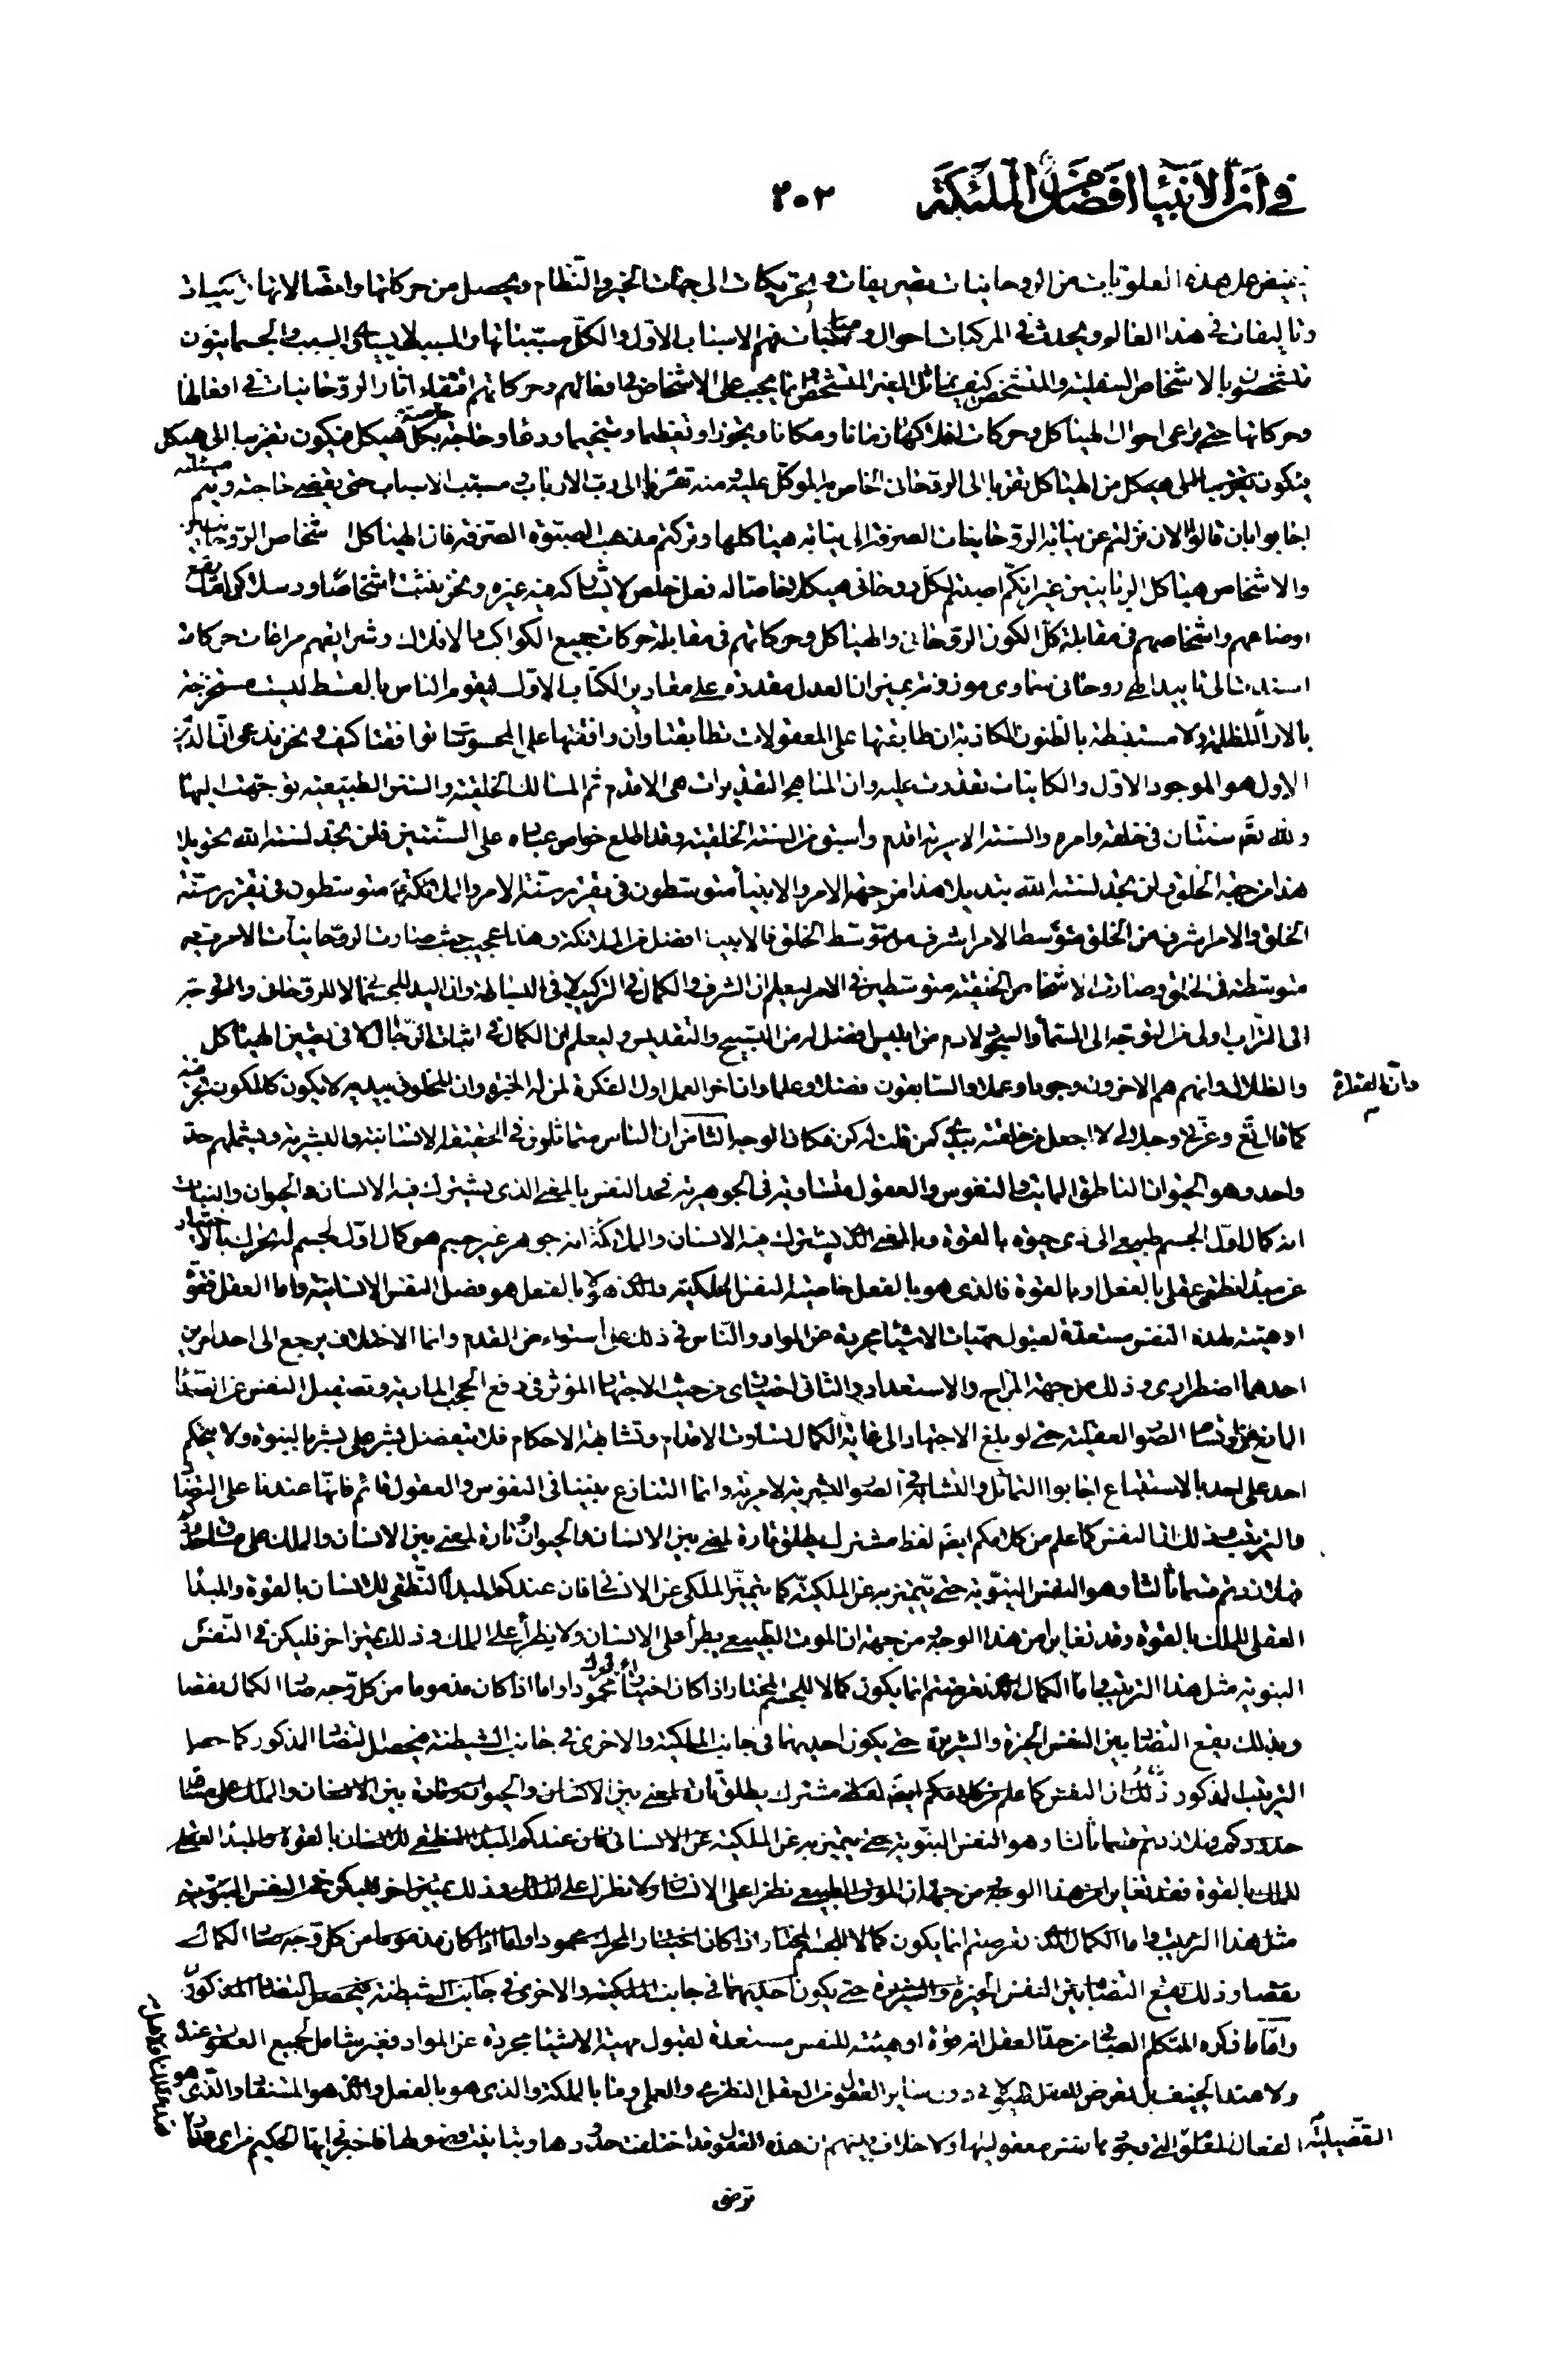 في ان الانبياء افضل من الملئكة ٢٠٢
فيفيض على هذه العلويات من الروحانيات تصريفات وتحريكات الى جهات الخير والنظام ويحصل من حركاتها واتصالاتها تركيبات
وتاليفات في هذا العالم ويحدث في المركبات احوال ومناسبات فهم الاسباب الاول والكل مسبباتها والمسبب لا يساوى السبب والجسمانيون
متشخصون بالاشخاص السفلية والمتشخص كيف يماثل الغير المتشخص وانما يجب على الاشخاص في افعالهم وحركاتهم اقتفاء اثار الروحانيات في افعالها
وحركاتها حتى يراعى احوال الهياكل وحركات افلاكها زمانا ومكانا وبخورا وتعظيما وتنجيما ودعا وحاجة خاصة بكل هيكل فيكون تقربا الى هيكل
فيكون تقربا الى هيكل من الهياكل تقربا الى الروحاني الخاص به الموكل عليه ومنه تقربا الى رب الارباب ومسبب الاسباب حتى يقضى حاجته ويتم مسئلته
اجابوا بان قالوا الان نزلتم عن نيابة الروحانيات الصرفة الى نيابة هياكلها وتركتم مذهب الصبوة الصرفة فان الهياكل اشخاص الروحانيين
والاشخاص هياكل الربانيين غير انكم اصبتم لكل روحانى هيكلا خاصا له فعل خاص لا يشاركه فيه غيره ونحن نثبت اشخاصا ورسلا كراما يقع
اوضاعهم واشخاصهم في مقابلة كل الكون الروحانى والهياكل وحركاتهم في مقابلة حركات جميع الكواكب والافلاك وشرايعهم مراعات حركات
استندت الى تاييد الهى روحانى سماوى موزونة بميزان العدل مقدرة على مقادير الكتاب الاول ليقوم الناس بالقسط ليست مستخرجة
بالاراء المظلمة ولا مستنبطة بالظنون الكاذبة ان طابقتها على المعقولات تطابقتا وان وافقتها على المحسوسات توافقتا كيف ونحن ندعى ان الدين
الاول هو الموجود الاول والكاينات تقدرت عليه وان المناهج التقديرات هى الاقدم ثم المسالك الخلقية والسنن الطبيعية توجهت اليها
ولله تع سنتان في خلقه وامره والسنة الامرية اقدم وأسبق من السنة الخلقية وقد اطلع خواص عباده على السنتين فلن تجد لسنة الله تحويلا
هذا من جهة الخلق ولن تجد لسنة الله تبديلا هذا من جهة الامر والانبيا متوسطون في تقرير سنة الامر والملائكة متوسطون في تقرير سنة
الخلق والامر اشرف من الخلق فمتوسط الامر اشرف من متوسط الخلق فالانبياء افضل من الملائكة وهذا عجيب حيث صارت الروحانيات الامرية
متوسطة في الخلق وصارت الاشخاص الخلقية متوسطين في الامر ليعلم ان الشرف والكمال في التركيب لا في البساطة وان اليد للجسمانى لا للروحانى والتوجه
الى التراب اولى من التوجه الى السماء والسجود لادم من ابليس افضل له من التسبيح والتقديس وليعلم ان الكمال في اثبات الرجال لا في تعيين الهياكل
والظلال وانهم هم الاخرون وجودا وعملا والسابقون فضلا وعلما وان اخر العمل اول الفكرة وان الفطرة لمن له الخبرة وان المخلوق بيديه لا يكون كالمكون بحرفيه
كما قال تع وعزتى وجلالى لا اجعل من خلقته بيدى كمن قلت له كن فكان الوجه الثامن ان الناس متماثلون في الحقيقة الانسانية والبشرية ويشملهم حد
واحد وهو الحيوان الناطق المايت والنفوس والعقول متساوية في الجوهرية فحد النفس بالمعنى الذى يشترك فيه الانسان والحيوان والنبات
انه كمال اول الجسم طبيعى الى ذى حيوة بالقوة وبالمعنى الذى يشترك فيه الانسان والملائكة انه جوهر غير جسم هو كمال اول لجسم له محرك بالاختيار
عن مبدأ نطقى عقلى بالفعل او بالقوة فالذى هو بالفعل خاصية النفس الملكية والذى هو لا بالفعل هو فصل النفس الانسانية واما العقل فقوة
او هيئة لهذه النفس مستعدة لقبول مهيات الاشيا مجردة عن المواد والناس في ذلك على استواء من القدم وانما الاختلاف يرجع الى احد امرين
احدهما اضطرارى وذلك من جهة المزاج والاستعداد والثانى اختيارى من حيث الاجتهاد المؤثر في دفع الحجب المادية وتصقيل النفس عن الصدا
المانع عن ارتسام الصور العقلية حتى لو بلغ الاجتهاد الى غاية الكمال تساوت الاقدام وتشابهت الاحكام فلا يتفضل بشر على بشر بالنبوة ولا يتحكم
احد على احد بالاستتباع اجابوا التماثل والتشابه في الصور البشرية لا مرية وانما التنازع بيننا في النفوس والعقول قائم فانها عندنا على التضاد
والترتيب فذلك ان النفس كما علم من كلامكم ايضا لفظ مشترك يطلق تارة لمعنى بين الانسان والحيوان وتارة لمعنى بين الانسان والملك على مساق حدودكم
فهلا زدتم قسما ثالثا وهو النفس النبوية حتى يتميز به عن الملكية كما يتميز الملكى عن الانسانى فان عندكم المبدأ النطقى للانسان بالقوة والمبدا
العقلى للملك بالقوة وقد تغايرا من هذا الوجه ومن جهة ان الموت الطبيعى يطرأ على الانسان ولا يطرأ على الملك وذلك تميز اخر فليكن في النفس
النبوية مثل هذا الترتيب واما الكمال الذى تعرضتم انما يكون كمالا للجسم المختار اذا كان اختيارا محمودا واما اذا كان مذموما من كل وجه صار الكمال نقصا
وبذلك يقع التضاد بين النفس الخيرة والشريرة حتى يكون احديهما في جانب الملكية والاخرى في جانب الشيطنة فيحصل التضاد المذكور كما حصل
الترتيب المذكور ذلك ان النفس كما علم من كلامكم ايضا لفظ مشترك يطلق تارة لمعنى بين الانسان والحيوان وتارة بين الانسان والملك على مساق
حدودكم فهلا زدتم قسما ثالثا وهو النفس النبوية حتى يتميز به عن الملكية عن الانسانى فان عندكم المبدأ النطقى للانسان بالقوة والمبدأ العقلى
للملك بالقوة فقد تغايرا من هذا الوجه ومن جهة ان الموت الطبيعى يطرأ على الانسان ولا يطرأ على الملك وذلك تميز اخر فليكن في النفس النبوية
مثل هذا الترتيب واما الكمال الذى تعرضتم انما يكون كمالا للجسم المختار اذا كان اختيار المحرك محمودا واما اذا كان مذموما من كل وجه صار الكمال
نقصا وذلك يقع التضاد بين النفس الخيرة والشريرة حتى يكون احديهما في جانب الملكية والاخرى في جانب الشيطنة فيحصل التضاد المذكور
واما ما ذكره المتكلم الصابى من حد العقل انه قوة او هيئة للنفس مستعدة لقبول مهية الاشيا مجردة عن المواد فغير شامل لجميع العقول عنده
ولا عند الحنيف بل تعرض للعقل الهيولانى دون ساير العقول من العقل النظرى والعملى وما بالملكة والذى هو بالفعل والذى هو المستفاد والذى هو
الفعال
توضى